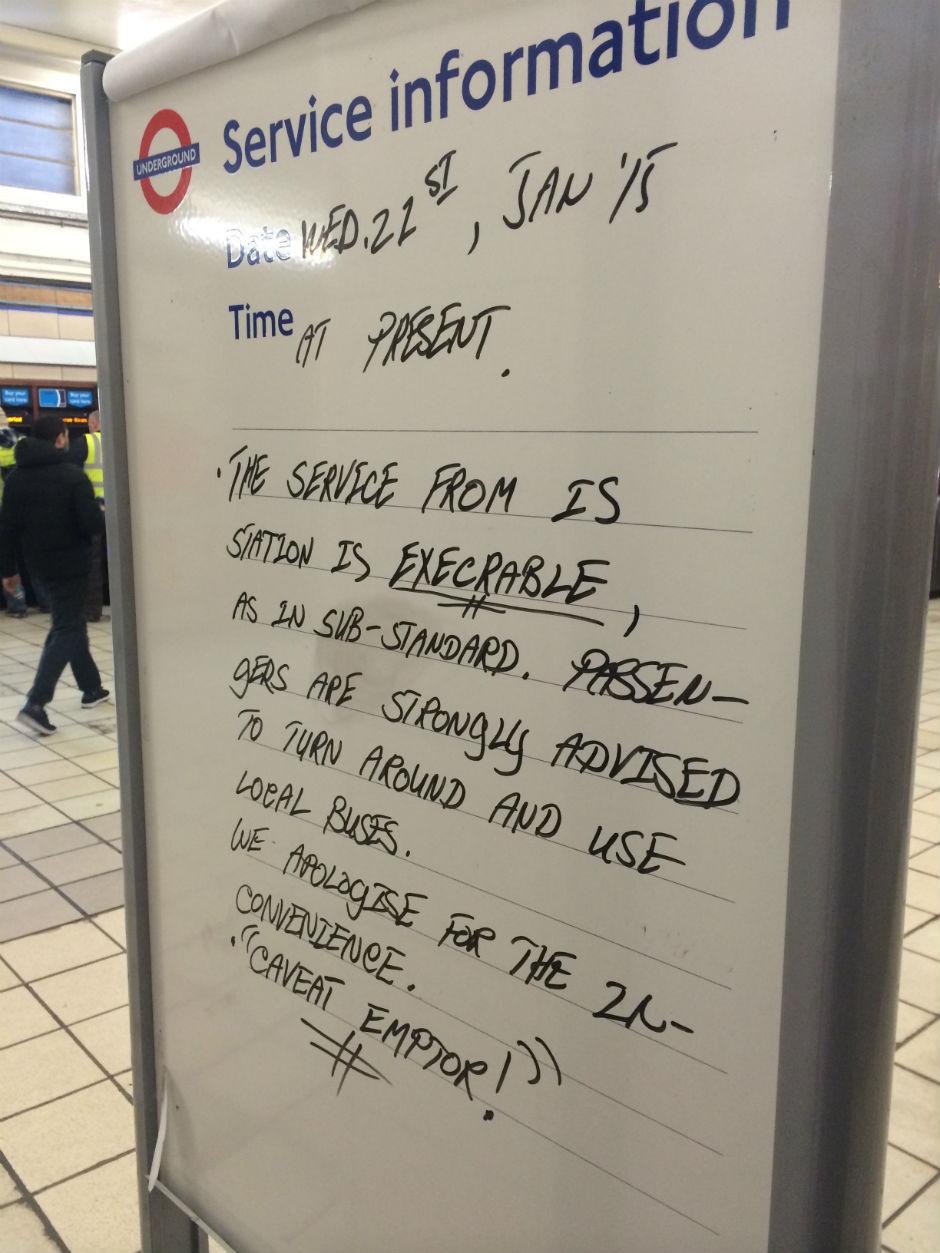 Service information
UNDERGROUND
Date WED. 21ST, JAN '15
Time AT PRESENT.
·THE SERVICE FROM IS
STATION IS EXECRABLE,
AS IN SUB-STANDARD. PASSEN-
GERS ARE STRONGLY ADVISED
TO TURN AROUND AND USE
LOCAL BUSES.
WE APOLOGISE FOR THE IN-
CONVENIENCE.
·"CAVEAT EMPTOR!"
Buy your
Buy your